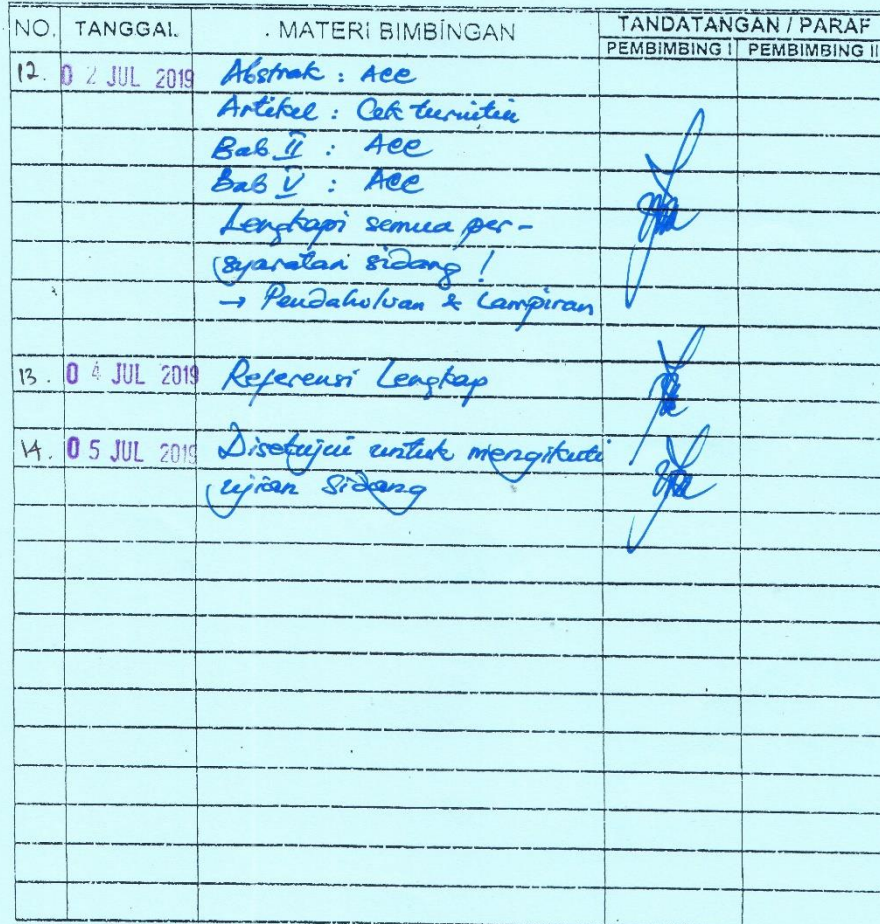 NO. TANGGAL MATERI BIMBINGAN TANDATANGAN / PARAF
PEMBIMBING I PEMBIMBING II
12. 02 JUL 2019 Abstrak : Acc
Artikel : Cek turnitin
Bab II : Acc
Bab V : Acc
Lengkapi semua per-
syaratan sidang !
→ Pendahuluan & Lampiran
13. 04 JUL 2019 Referensi Lengkap
14. 05 JUL 2019 Disetujui untuk mengikuti
ujian sidang